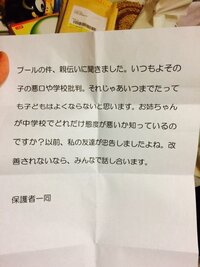 プールの件、親伝いに聞きました。いつもよその
子の悪口や学校批判。それじゃあいつまでたって
も子どもはよくならないと思います。お姉ちゃん
が中学校でどれだけ態度が悪いか知っているので
すか？以前、私の友達が忠告しましたよね。改
善されないなら、みんなで話し合います。
保護者一同